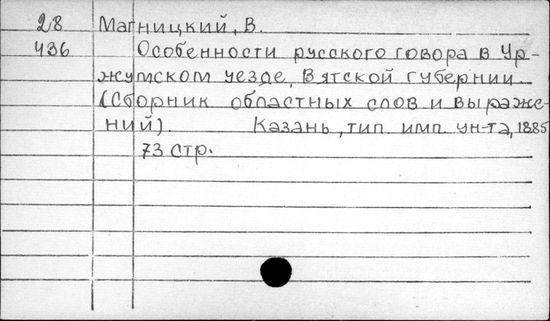 28 Магницкий, В.
436 Особенности русского говора в Ур-
жумском уезде, Вятской губернии.
(Сборник областных слов и выраже-
ний). Казань, тип. имп. ун-та, 1885
73 стр.